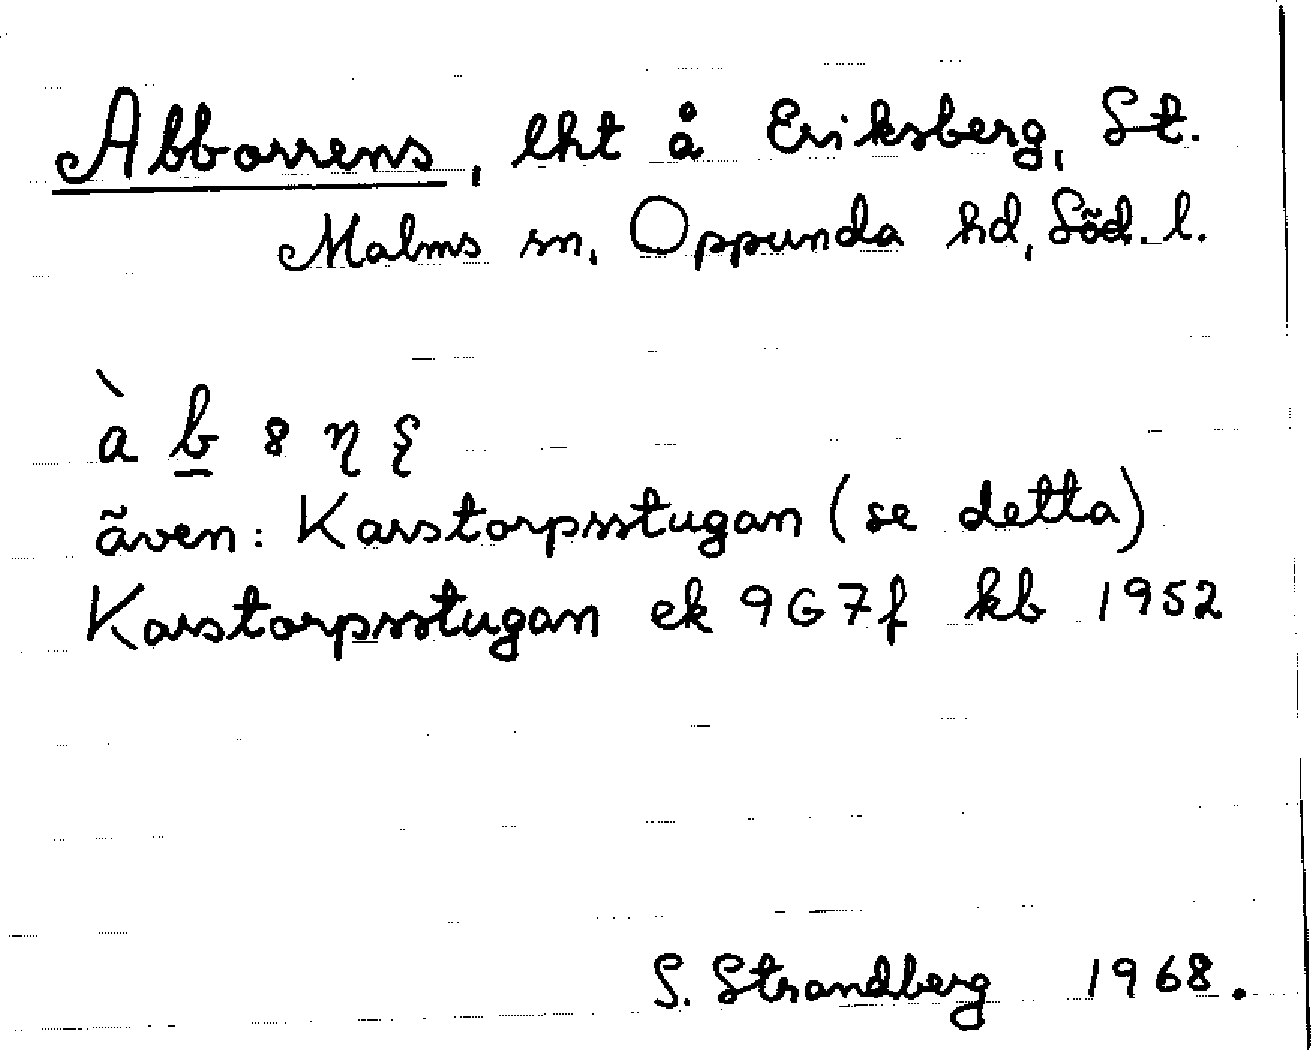 Abborrens, lht å Eriksberg, St.
Malms sn, Oppunda hd, Söd. l.
även: Karstorpsstugan (se detta)
Karstorpsstugan ek 9G7f kb 1952
S. Strandberg 1968.